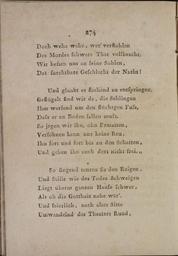 274
Doch wehe wehe, wer verstohlen
Des Mordes schwere That vollbracht,
Wir heften uns an seine Sohlen,
Das furchtbare Geschlecht der Nacht!
Und glaubt er fliehend zu entspringen,
Geflügelt sind wir da, die Schlingen
Ihm werfend um den flüchtgen Fuß,
Daß er zu Boden fallen muß.
So jagen wir ihn, ohn Ermatten,
Versöhnen kann uns keine Reu,
Ihn fort und fort bis zu den Schatten,
Und geben ihn auch dort nicht frei.
So singend tanzen sie den Reigen,
Und Stille wie des Todes Schweigen
Liegt überm ganzen Hause schwer,
Als ob die Gottheit nahe wär'.
Und feierlich, nach alter Sitte
Umwandelnd des Theaters Rund,